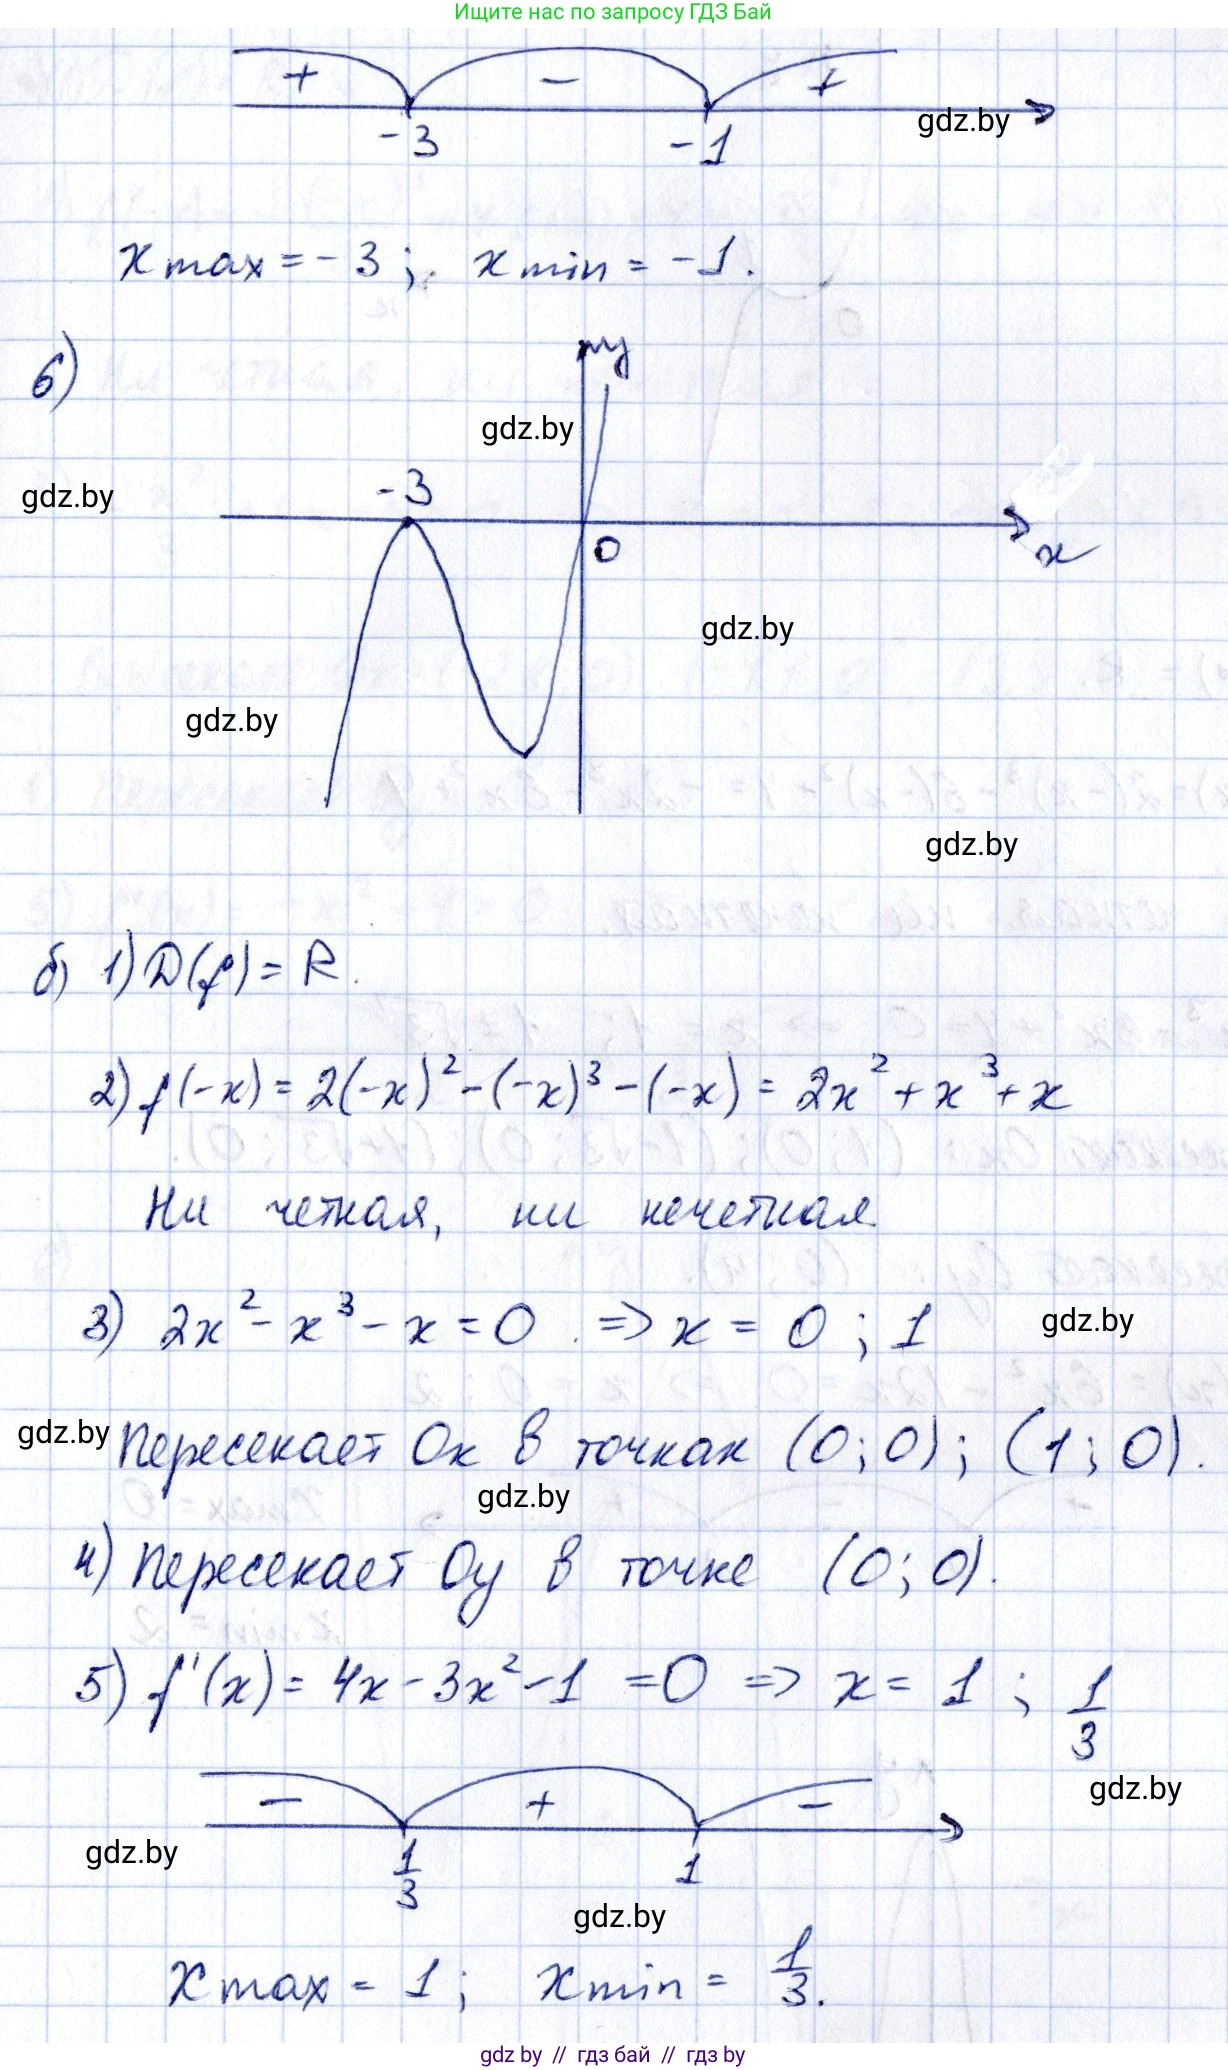 Ищите нас по запросу ГДЗ Бай
+ − +
gdz.by
-3 -1
x max = -3; x min = -1.
6)
y
gdz.by
-3
gdz.by
0
x
gdz.by
gdz.by
gdz.by
б) 1) D(f) = R.
2) f(-x) = 2(-x)² - (-x)³ - (-x) = 2x² + x³ + x
Ни четная, ни нечетная
3) 2x² - x³ - x = 0 => x = 0; 1
gdz.by
gdz.by
Пересекает Ox в точках (0; 0); (1; 0).
gdz.by
4) Пересекает Oy в точке (0; 0).
5) f'(x) = 4x - 3x² - 1 = 0 => x = 1; 1/3
gdz.by
− + −
gdz.by
1/3 1
gdz.by
x max = 1; x min = 1/3.
gdz.by // гдз бай // гдз by